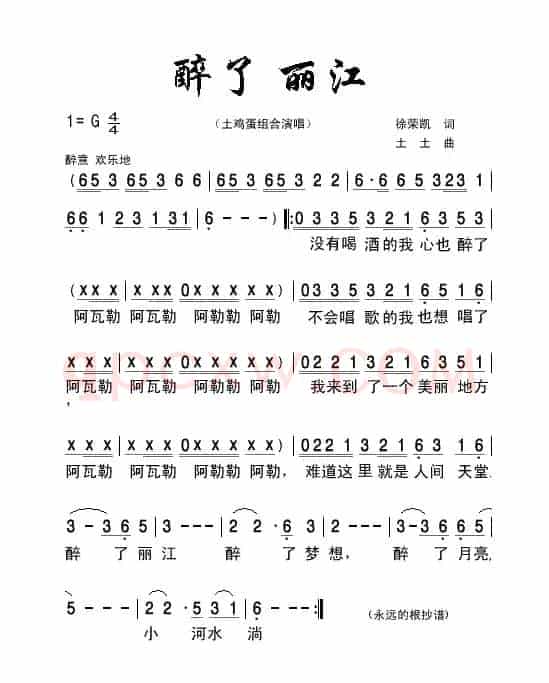 醉了 丽江
1= G 4/4 (土鸡蛋组合演唱) 徐荣凯 词
土 土 曲
醉熏 欢乐地
(65 3 65 3 6 6 | 65 3 65 3 2 2 | 6· 65 3 323 1 |
66 1 2 3 1 31 | 6 - - -) ‖: 0 3 3 5 3 2 1 6 3 5 3 |
没有喝 酒的我 心也 醉了
(xx x | xx x 0x x x x) | 03 3 5 3 2 1 6 5 1 6 |
阿瓦勒 阿瓦勒 阿勒勒 阿勒 不会唱 歌的我也想 唱了
xx x xx x 0x x x x | 022 1 3 2 1 6 3 5 1 |
阿瓦勒 阿瓦勒 阿勒勒 阿勒 我来到 了一个 美丽 地方
,
xx x xx x 0x x x x | 022 1 3 2 1 2 3 1 6 |
阿瓦勒 阿瓦勒 阿勒勒 阿勒, 难道这 里 就是 人间 天堂.
3 - 3 6 5 | 3 - - - | 2 2 · 6 3 | 2 - - - | 3 - 3 6 5 |
醉 了 丽 江 醉 了 梦 想, 醉 了 月亮,
5 - - - | 2 2 · 5 3 1 | 6 - - :‖
小 河水 淌
(永远的根抄谱)
qpcxw.COM